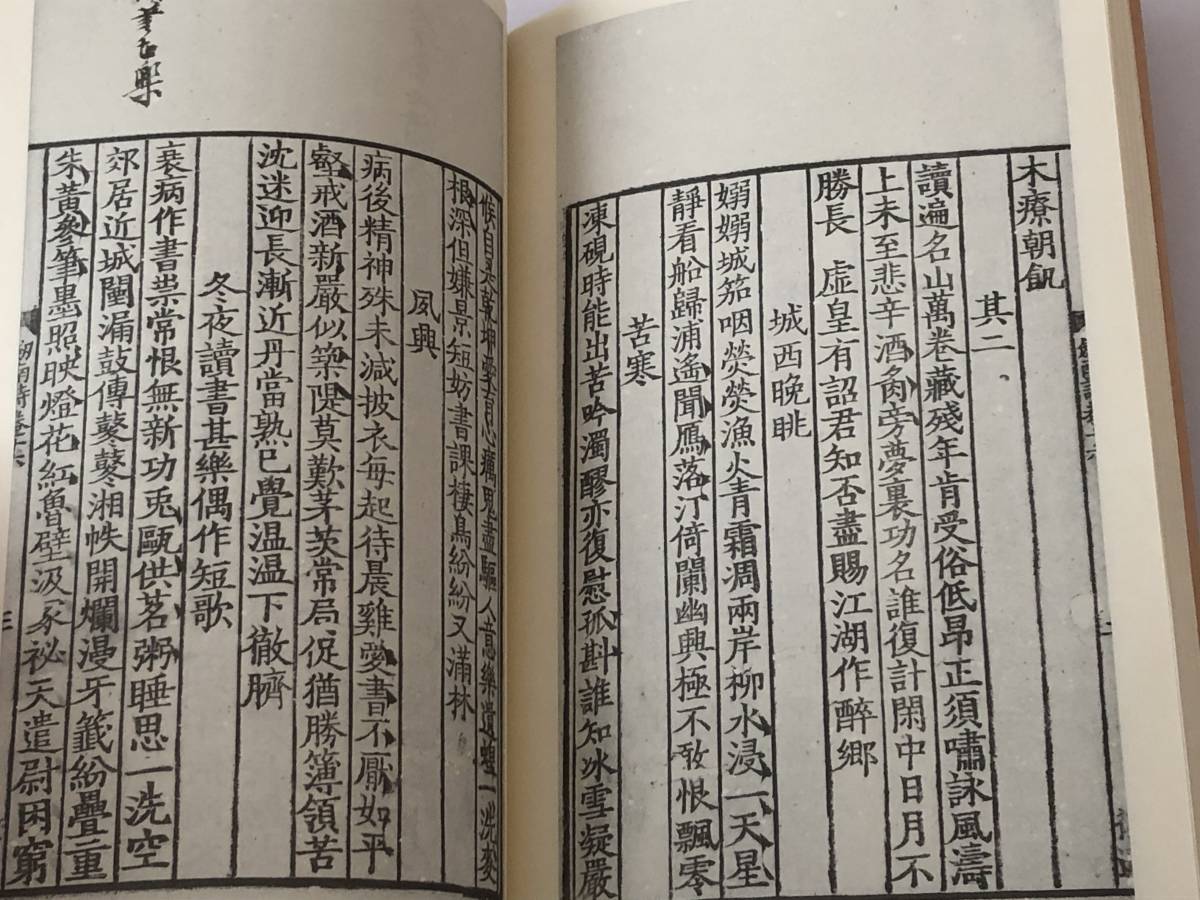 木療朝飢
其二
讀遍名山萬卷藏殘年肯受俗低昂正須嘯詠風濤
上未至悲辛酒肉旁夢裏功名誰復計閑中日月不
勝長 虛皇有詔君知否盡賜江湖作醉鄉
城西晚眺
嫋嫋城笳咽熒熒漁火青霜凋兩岸柳水浸一天星
靜看船歸浦遙聞鴈落汀倚闌幽興極不敢恨飄零
苦寒
凍硯時能出苦吟濁醪亦復慰孤斟誰知冰雪凝嚴
候自是乾坤愛育心癘鬼盡驅人意樂遺蝗一洗麥
根深但嫌景短妨書課棲鳥紛紛又滿林
夙興
病後精神殊未減披衣每起待晨雞愛書不厭如平
壑戒酒新嚴似築隄莫歎茅茨常局促猶勝簿領苦
沈迷迎長漸近丹當熟已覺温温下徹臍
冬夜讀書甚樂偶作短歌
衰病作書祟常恨無新功兎甌供茗粥睡思一洗空
郊居近城闉漏鼓傳鼕鼕湘帙開爛漫牙籤紛疊重
朱黃參筆墨照映燈花紅魯壁汲冢祕天遣尉困窮